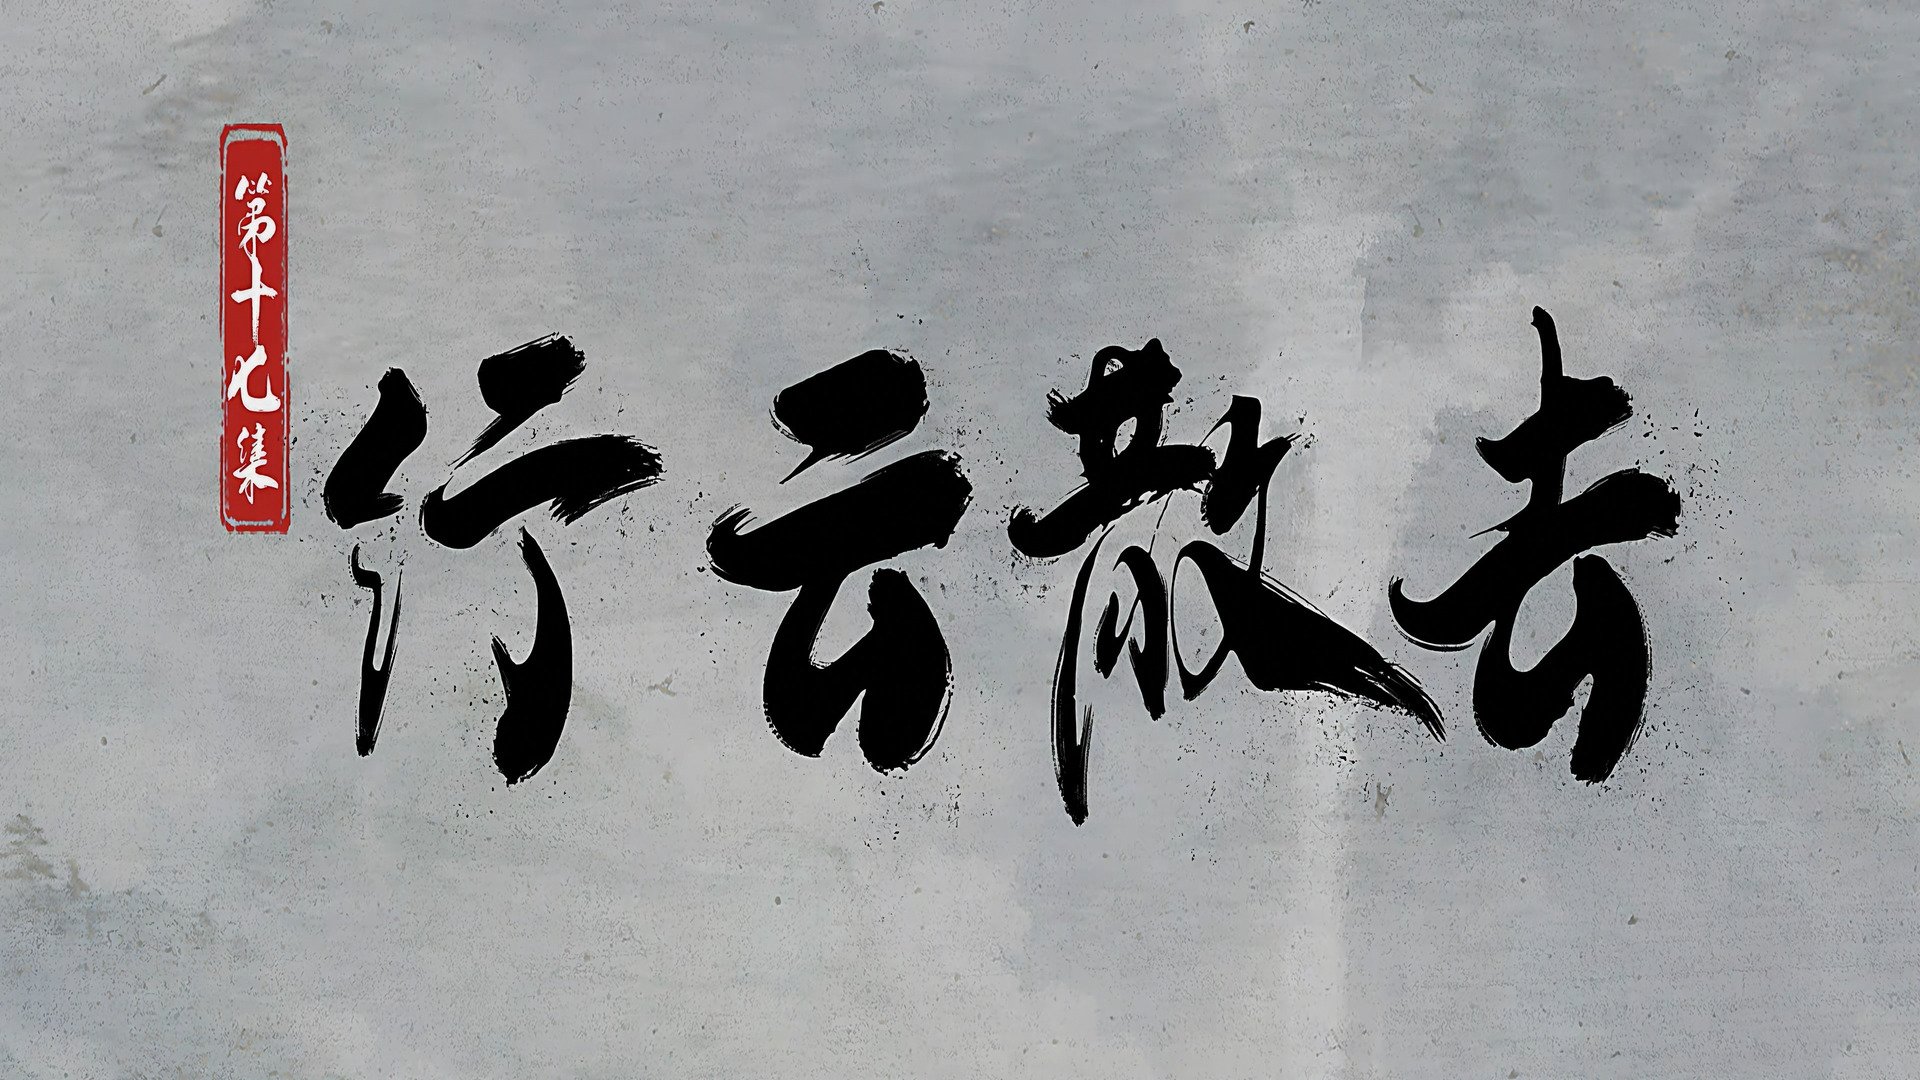 第十七集
行云散去